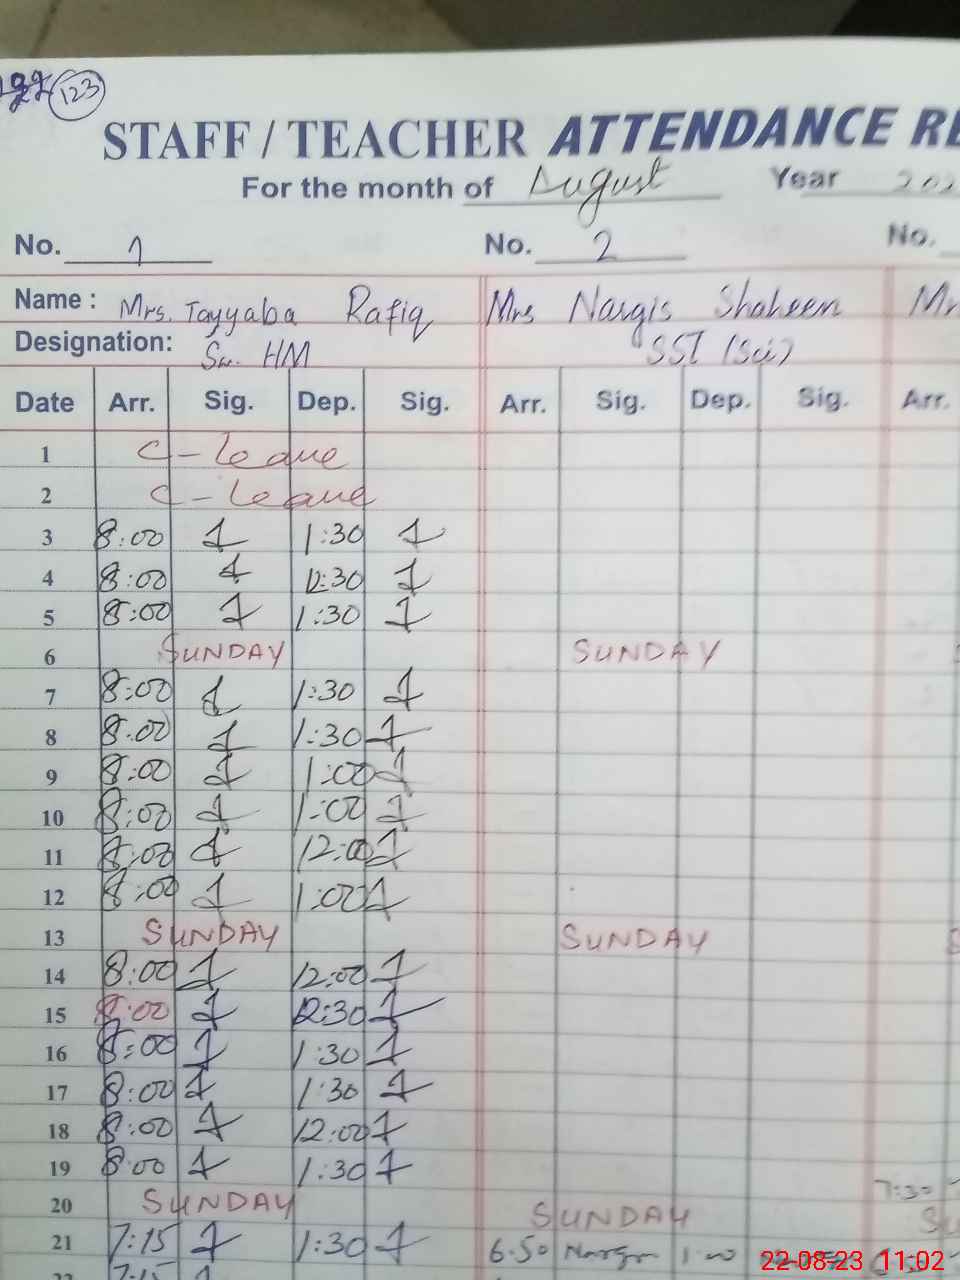 123
STAFF / TEACHER ATTENDANCE RE
For the month of August Year 202
No. 1 No. 2 No.
Name : Mrs. Tayyaba Rafiq Mrs Nargis Shaheen Mr
Designation: Sr. HM SST (Sci)
Date Arr. Sig. Dep. Sig. Arr. Sig. Dep. Sig. Arr.
1 C-leave
2 C-leave
3 8:00 1:30
4 8:00 12:30
5 8:00 1:30
6 SUNDAY SUNDAY S
7 8:00 1:30
8 8:00 1:30
9 8:00 1:00
10 8:00 1:00
11 8:00 12:00
12 8:00 1:00
13 SUNDAY SUNDAY S
14 8:00 12:00
15 8:00 12:30
16 8:00 1:30
17 8:00 1:30
18 8:00 12:00
19 8:00 1:30 7:30
20 SUNDAY SUNDAY SU
21 7:15 1:30 6:50
7:15
22-08-23 11:02